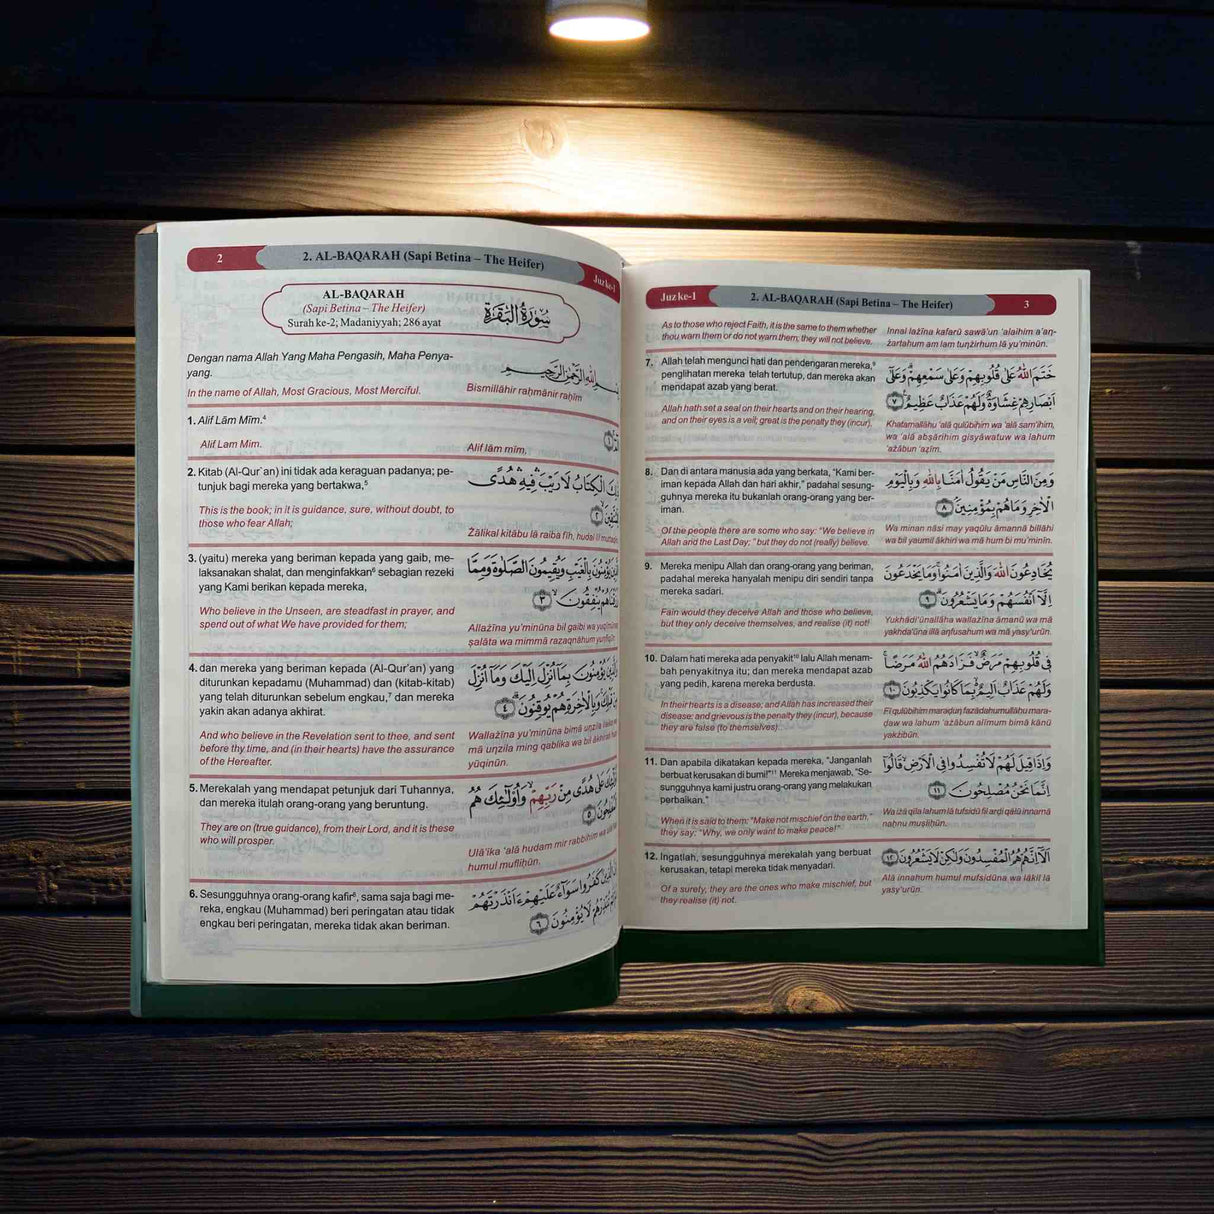 2
2. AL-BAQARAH (Sapi Betina – The Heifer)
Juz ke-1
AL-BAQARAH
(Sapi Betina – The Heifer)
Surah ke-2; Madaniyyah; 286 ayat
سُورَةُ الْبَقَرَةِ
Dengan nama Allah Yang Maha Pengasih, Maha Penya-
yang.
In the name of Allah, Most Gracious, Most Merciful.
اللهِ الرَّحْمٰنِ الرَّحِيْمِ
Bismillāhir raḥmānir raḥīm
1. Alif Lām Mīm.⁴
Alif Lam Mim.
Alif lām mīm.
2. Kitab (Al-Qur`an) ini tidak ada keraguan padanya; pe-
tunjuk bagi mereka yang bertakwa,⁵
This is the book; in it is guidance, sure, without doubt, to
those who fear Allah;
الْكِتَابُ لَا رَيْبَ فِيْهِ هُدًى
٢
Żālikal kitābu lā raiba fīh, hudal lil
3. (yaitu) mereka yang beriman kepada yang gaib, me-
laksanakan shalat, dan menginfakkan⁶ sebagian rezeki
yang Kami berikan kepada mereka,
Who believe in the Unseen, are steadfast in prayer, and
spend out of what We have provided for them;
يُؤْمِنُوْنَ بِالْغَيْبِ وَيُقِيْمُوْنَ الصَّلٰوةَ وَمِمَّا
يُنْفِقُوْنَ ٣
Allażīna yu'minūna bil gaibi wa yuqīmūna
ṣalāta wa mimmā razaqnāhum yunfiqūn
4. dan mereka yang beriman kepada (Al-Qur'an) yang
diturunkan kepadamu (Muhammad) dan (kitab-kitab)
yang telah diturunkan sebelum engkau,⁷ dan mereka
yakin akan adanya akhirat.
And who believe in the Revelation sent to thee, and sent
before thy time, and (in their hearts) have the assurance
of the Hereafter.
يُؤْمِنُوْنَ بِمَآ اُنْزِلَ اِلَيْكَ وَمَآ اُنْزِلَ
وَبِالْاٰخِرَةِ هُمْ يُوْقِنُوْنَ ٤
Wallażīna yu'minūna bimā unzila ilaika
mā unzila ming qablika wa bil ākhirati hum
yūqinūn.
5. Merekalah yang mendapat petunjuk dari Tuhannya,
dan mereka itulah orang-orang yang beruntung.
They are on (true guidance), from their Lord, and it is these
who will prosper.
عَلٰى هُدًى مِّنْ رَّبِّهِمْ وَاُولٰٓئِكَ هُمُ
٥
Ulā'ika 'alā hudam mir rabbihim wa
humul mufliḥūn.
6. Sesungguhnya orang-orang kafir⁸, sama saja bagi me-
reka, engkau (Muhammad) beri peringatan atau tidak
engkau beri peringatan, mereka tidak akan beriman.
كَفَرُوْا سَوَآءٌ عَلَيْهِمْ ءَاَنْذَرْتَهُمْ
لَا يُؤْمِنُوْنَ ٦
Juz ke-1
2. AL-BAQARAH (Sapi Betina – The Heifer)
3
As to those who reject Faith, it is the same to them whether
thou warn them or do not warn them; they will not believe.
Innal lażīna kafarū sawā'un 'alaihim a'an-
żartahum am lam tunżirhum lā yu'minūn.
7. Allah telah mengunci hati dan pendengaran mereka,⁹
penglihatan mereka telah tertutup, dan mereka akan
mendapat azab yang berat.
Allah hath set a seal on their hearts and on their hearing,
and on their eyes is a veil; great is the penalty they (incur).
خَتَمَ اللهُ عَلٰى قُلُوْبِهِمْ وَعَلٰى سَمْعِهِمْ وَعَلٰٓى
اَبْصَارِهِمْ غِشَاوَةٌ وَّلَهُمْ عَذَابٌ عَظِيْمٌ ٧
Khatamallāhu 'alā qulūbihim wa 'alā sam'ihim,
wa 'alā abṣārihim gisyāwatuw wa lahum
'ażābun 'aẓīm.
8. Dan di antara manusia ada yang berkata, “Kami ber-
iman kepada Allah dan hari akhir,” padahal sesung-
guhnya mereka itu bukanlah orang-orang yang ber-
iman.
Of the people there are some who say: “We believe in
Allah and the Last Day; ” but they do not (really) believe.
وَمِنَ النَّاسِ مَنْ يَّقُوْلُ اٰمَنَّا بِاللهِ وَبِالْيَوْمِ
الْاٰخِرِ وَمَا هُمْ بِمُؤْمِنِيْنَ ٨
Wa minan nāsi may yaqūlu āmannā billāhi
wa bil yaumil ākhiri wa mā hum bi mu'minīn.
9. Mereka menipu Allah dan orang-orang yang beriman,
padahal mereka hanyalah menipu diri sendiri tanpa
mereka sadari.
Fain would they deceive Allah and those who believe,
but they only deceive themselves, and realise (it) not!
يُخَادِعُوْنَ اللهَ وَالَّذِيْنَ اٰمَنُوْا وَمَا يَخْدَعُوْنَ
اِلَّآ اَنْفُسَهُمْ وَمَا يَشْعُرُوْنَ ٩
Yukhādi'ūnallāha wallażīna āmanū wa mā
yakhda'ūna illā anfusahum wa mā yasy'urūn.
10. Dalam hati mereka ada penyakit¹⁰ lalu Allah menam-
bah penyakitnya itu; dan mereka mendapat azab
yang pedih, karena mereka berdusta.
In their hearts is a disease; and Allah has increased their
disease; and grievous is the penalty they (incur), because
they are false (to themselves).
فِيْ قُلُوْبِهِمْ مَّرَضٌ فَزَادَهُمُ اللهُ مَرَضًا
وَلَهُمْ عَذَابٌ اَلِيْمٌ بِمَا كَانُوْا يَكْذِبُوْنَ ١٠
Fī qulūbihim maraḍun fazādahumullāhu mara-
ḍaw wa lahum 'ażābun alīmum bimā kānū
yakżibūn.
11. Dan apabila dikatakan kepada mereka, “Janganlah
berbuat kerusakan di bumi!”¹¹ Mereka menjawab, “Se-
sungguhnya kami justru orang-orang yang melakukan
perbaikan.”
When it is said to them: “Make not mischief on the earth,”
they say: “Why, we only want to make peace!”
وَاِذَا قِيْلَ لَهُمْ لَا تُفْسِدُوْا فِى الْاَرْضِ قَالُوْٓا
اِنَّمَا نَحْنُ مُصْلِحُوْنَ ١١
Wa iżā qīla lahum lā tufsidū fil arḍi qālū innamā
naḥnu muṣliḥūn.
12. Ingatlah, sesungguhnya merekalah yang berbuat
kerusakan, tetapi mereka tidak menyadari.
Of a surety, they are the ones who make mischief, but
they realise (it) not.
اَلَآ اِنَّهُمْ هُمُ الْمُفْسِدُوْنَ وَلٰكِنْ لَّا يَشْعُرُوْنَ ١٢
Alā innahum humul mufsidūna wa lākil lā
yasy'urūn.